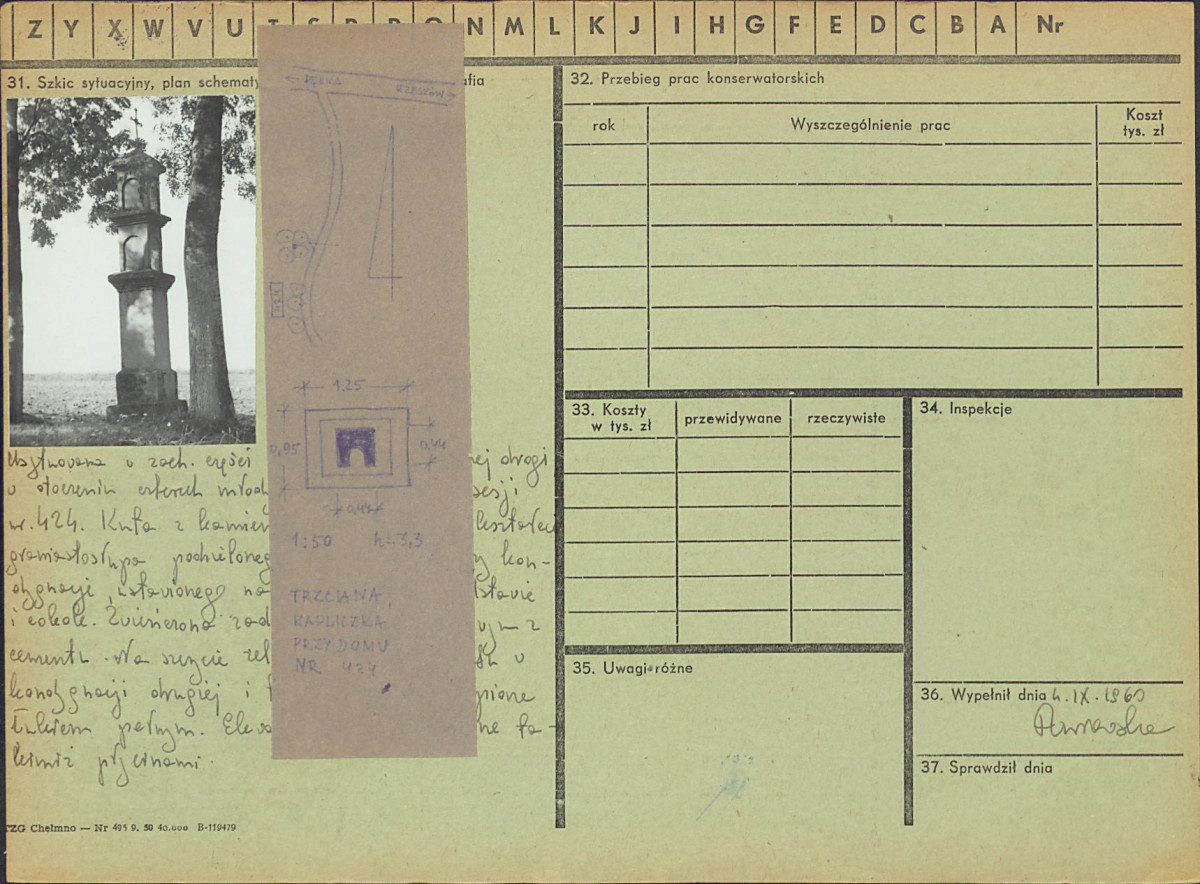 Z Y X W V U T S R P O N M L K J I H G F E D C B A Nr
31. Szkic sytuacyjny, plan schematy
fia
RZESZÓW
1,25
0,95
0,44
0,44
1:50 h=3,3
TRZCIANA,
KAPLICZKA
PRZY DOMU
NR 424
Usytuowana w zach. części ej drogi
w otoczeniu czterech młod sesji
nr. 424. Kuta z kamien kształci
graniastosłupa podzieloneg y kon-
dygnacji, ustawionego na dstawie
i cokole. Zwieńczona zad z
cementu. Na szczycie w
kondygnacji drugiej i pione
łukiem pełnym. Elew ne ta-
kimiż płycinami.
TZG Chełmno — Nr 495 9. 50 40.000 B-119479
32. Przebieg prac konserwatorskich
rok Wyszczególnienie prac Koszt
tys. zł
33. Koszty
w tys. zł przewidywane rzeczywiste
34. Inspekcje
35. Uwagi różne
36. Wypełnił dnia 4.IX.1960
37. Sprawdził dnia